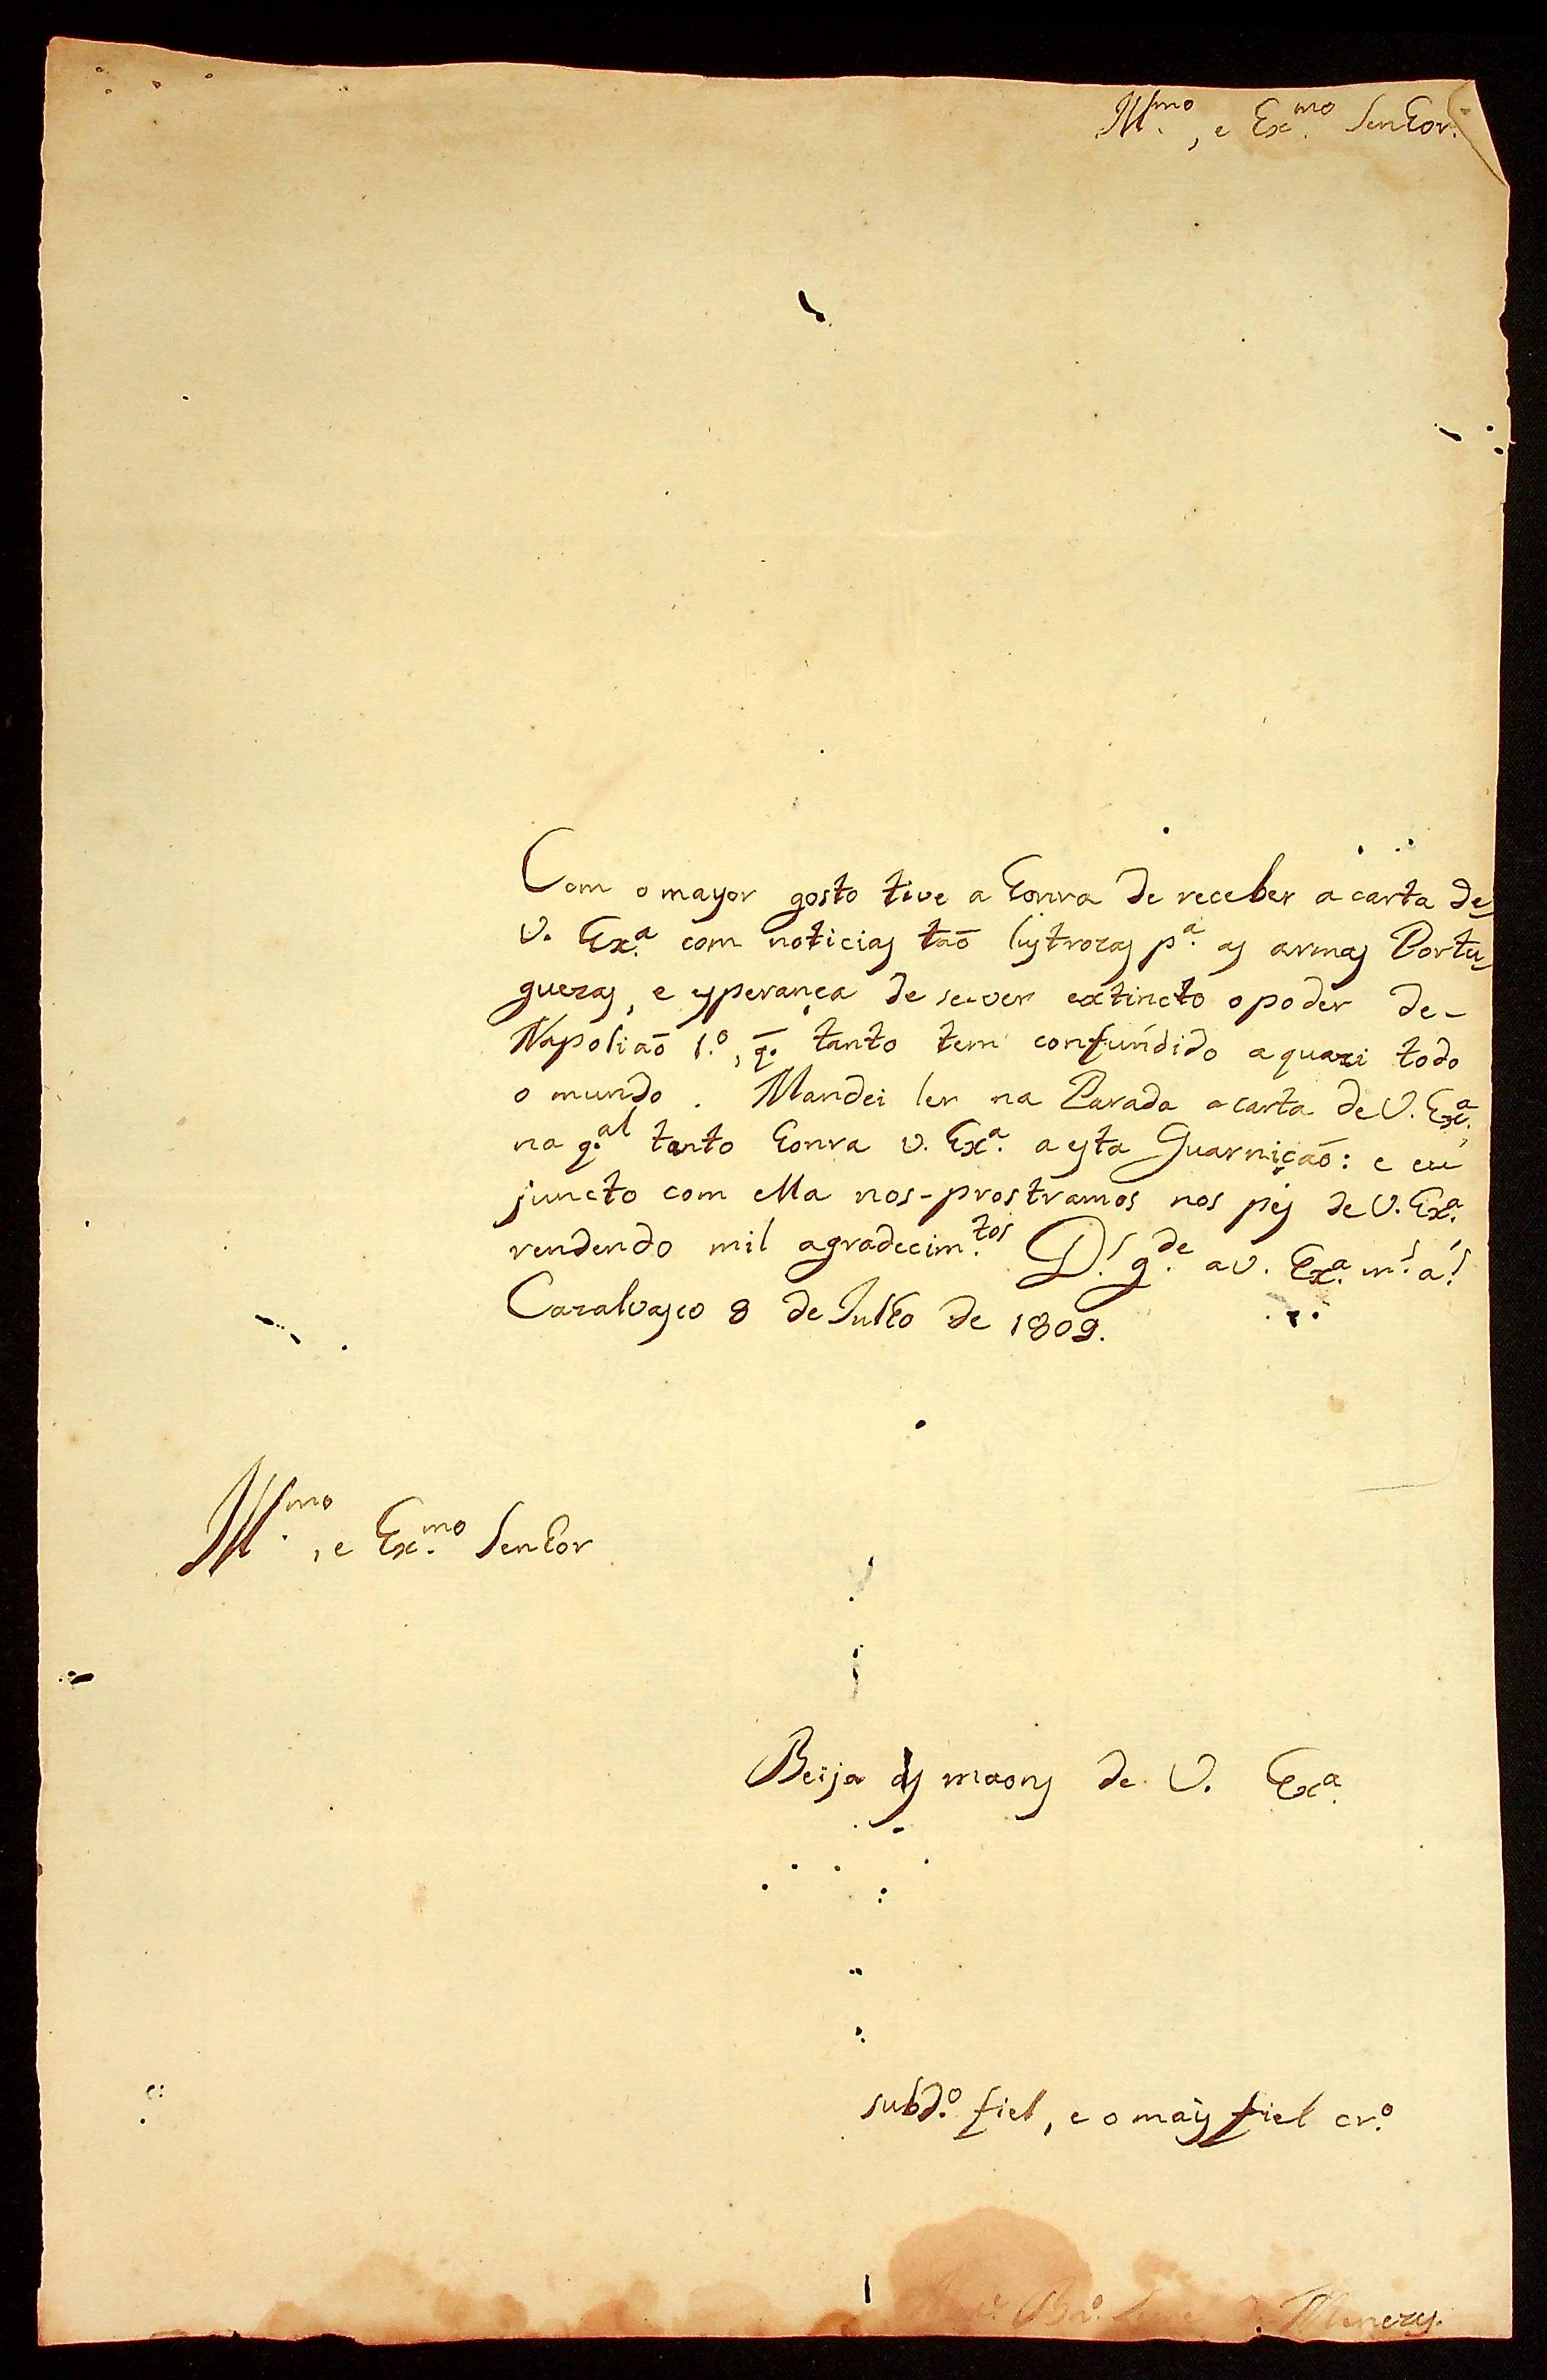 Ill.mo, e Ex.mo Senhor.
Com o mayor gosto tive a honra de receber a carta de
V. Ex.a com noticias taõ lustrozas p.a as armas Portu-
guezas, e esperança de se-ver extincto o poder de-
Napoliaõ 1.o, q̃. tanto tem confundido a quazi todo
o mundo. Mandei ler na Parada a carta de V. Ex.a,
na q.al tanto honra V. Ex.a a esta Guarniçaõ: e eu
juncto com ella nos-prostramos nos pés de V. Ex.a
rendendo mil agradecim.tos D.s g.de a V. Ex.a m.s a.s
Cazalvasco 8 de Julho de 1809.
Ill.mo, e Ex.mo Senhor
Beija as maons de V. Ex.a
subd.o fiel, e o mais fiel cr.o
Menezes.